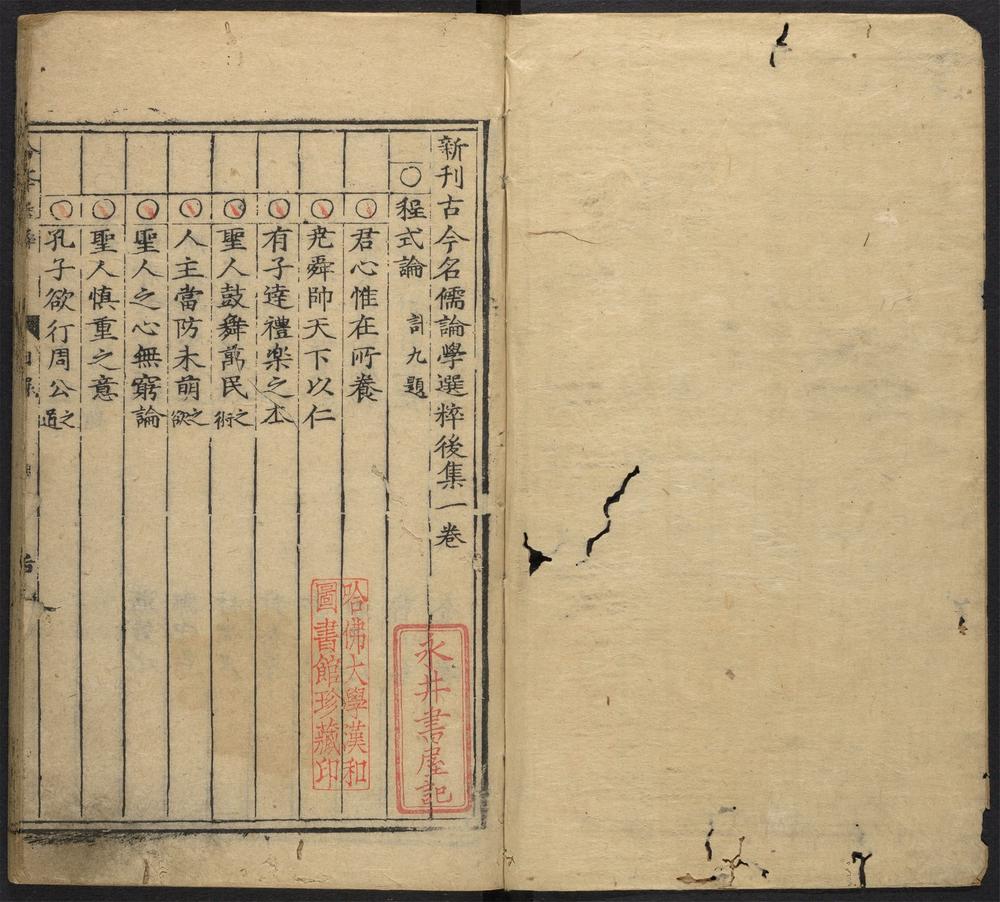 新刊古今名儒論學選粹後集一卷
○程式論 計九題
○君心惟在所養
○尭舜帥天下以仁
○有子達禮楽之本
○聖人鼓舞萬民之術
○人主當防未萌之欲
○聖人之心無窮論
○聖人慎重之意
○孔子欲行周公之道
永井書屋記
哈佛大學漢和
圖書館珍藏印